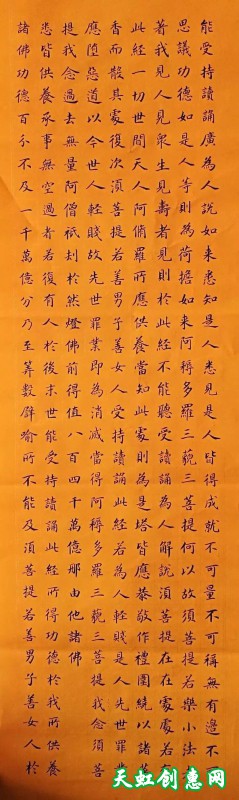 能受持讀誦廣為人說如來悉知是人悉見是人皆得成就不可量不可稱無有邊不可
思議功德如是人等則為荷擔如來阿耨多羅三藐三菩提何以故須菩提若樂小法
著我見人見眾生見壽者見則於此經不能聽受讀誦為人解說須菩提在在處處若有
此經一切世間天人阿修羅所應供養當知此處則為是塔皆應恭敬作禮圍繞以諸華
香而散其處復次須菩提若善男子善女人受持讀誦此經若為人輕賤是人先世罪業
應墮惡道以今世人輕賤故先世罪業即為消滅當得阿耨多羅三藐三菩提我念須菩
提我念過去無量阿僧祇劫於然燈佛前得值八百四千萬億那由他諸佛
悉皆供養承事無空過者若復有人於後末世能受持讀誦此經所得功德於我所供養
諸佛功德百分不及一千萬億分乃至筭數譬喻所不能及須菩提若善男子善女人於
天虹创意网